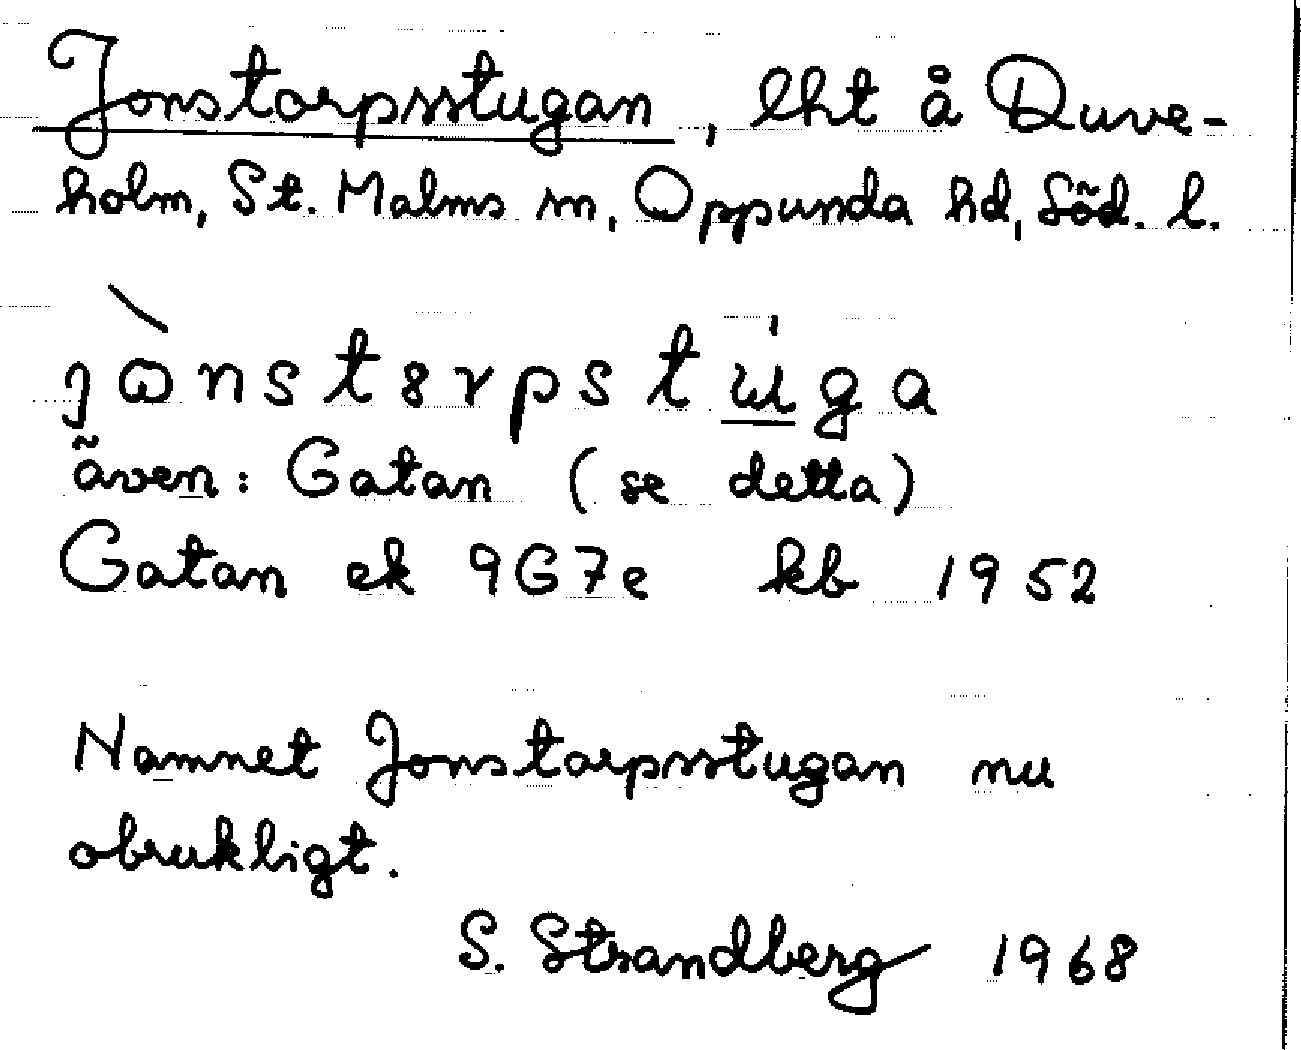 Jonstorpsstugan, lht å Duve-
holm, St. Malms sn, Oppunda hd, Söd. l.
även: Gatan (se detta)
Gatan ek 9G7e kb 1952
Namnet Jonstorpsstugan nu
obrukligt.
S. Strandberg 1968